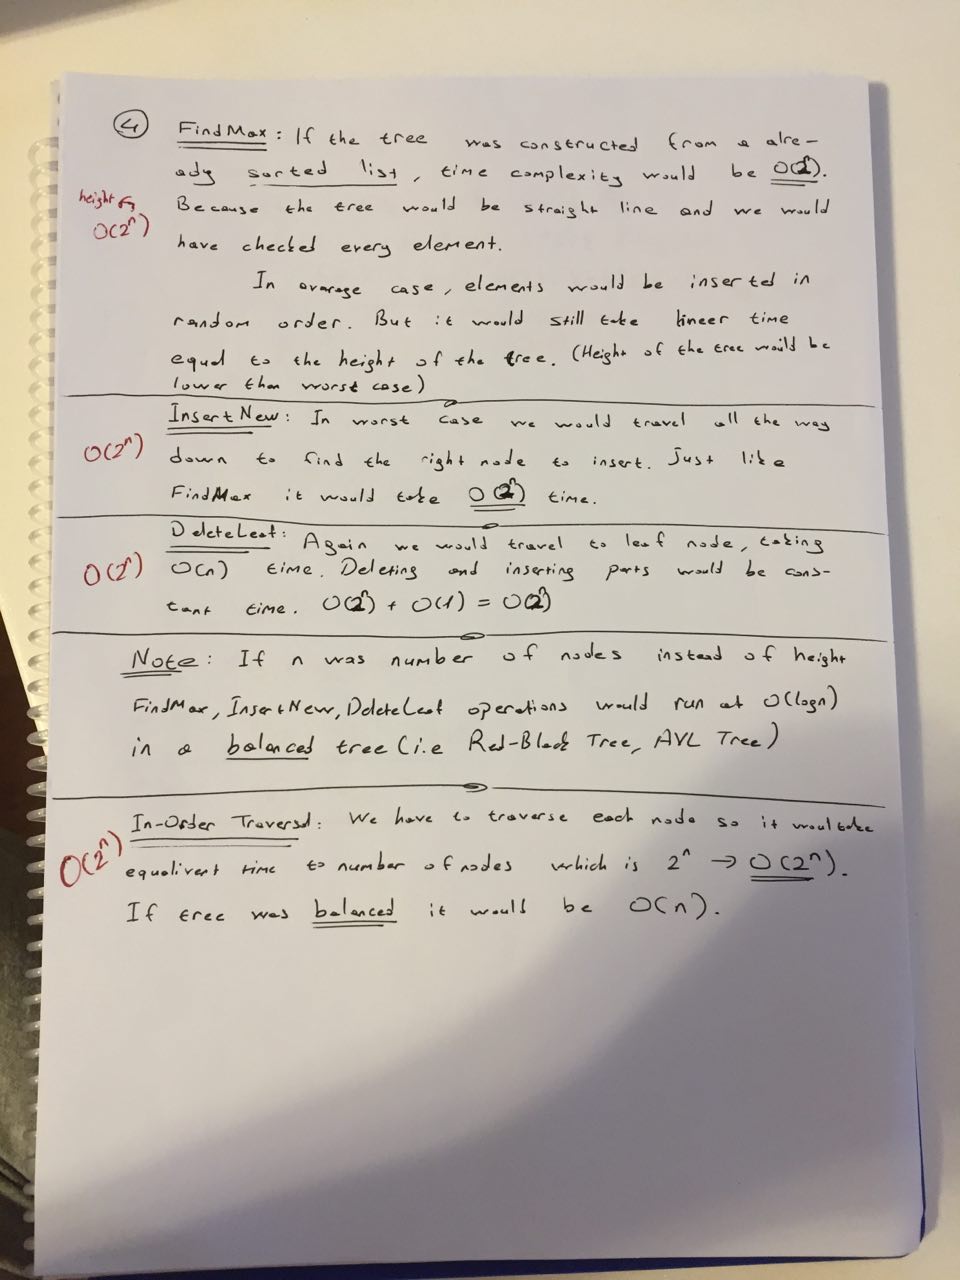 4
FindMax: If the tree was constructed from a alre-
ady sorted list, time complexity would be O(2^n).
height
O(2^n)
Because the tree would be straight line and we would
have checked every element.
In avarage case, elements would be inserted in
random order. But it would still take lineer time
equal to the height of the tree. (Height of the tree would be
lower than worst case)
InsertNew: In worst case we would travel all the way
O(2^n)
down to find the right node to insert. Just like
FindMax it would take O(2^n) time.
DeleteLeaf: Again we would travel to leaf node, taking
O(2^n)
O(n) time. Deleting and inserting parts would be cons-
tant time. O(2^n) + O(1) = O(2^n)
Note: If n was number of nodes instead of height
FindMax, InsertNew, DeleteLeaf operations would run at O(logn)
in a balanced tree (i.e Red-Black Tree, AVL Tree)
In-Order Traversal: We have to traverse each node so it woul take
O(2^n)
equalivent time to number of nodes which is 2^n → O(2^n).
If tree was balanced it would be O(n).